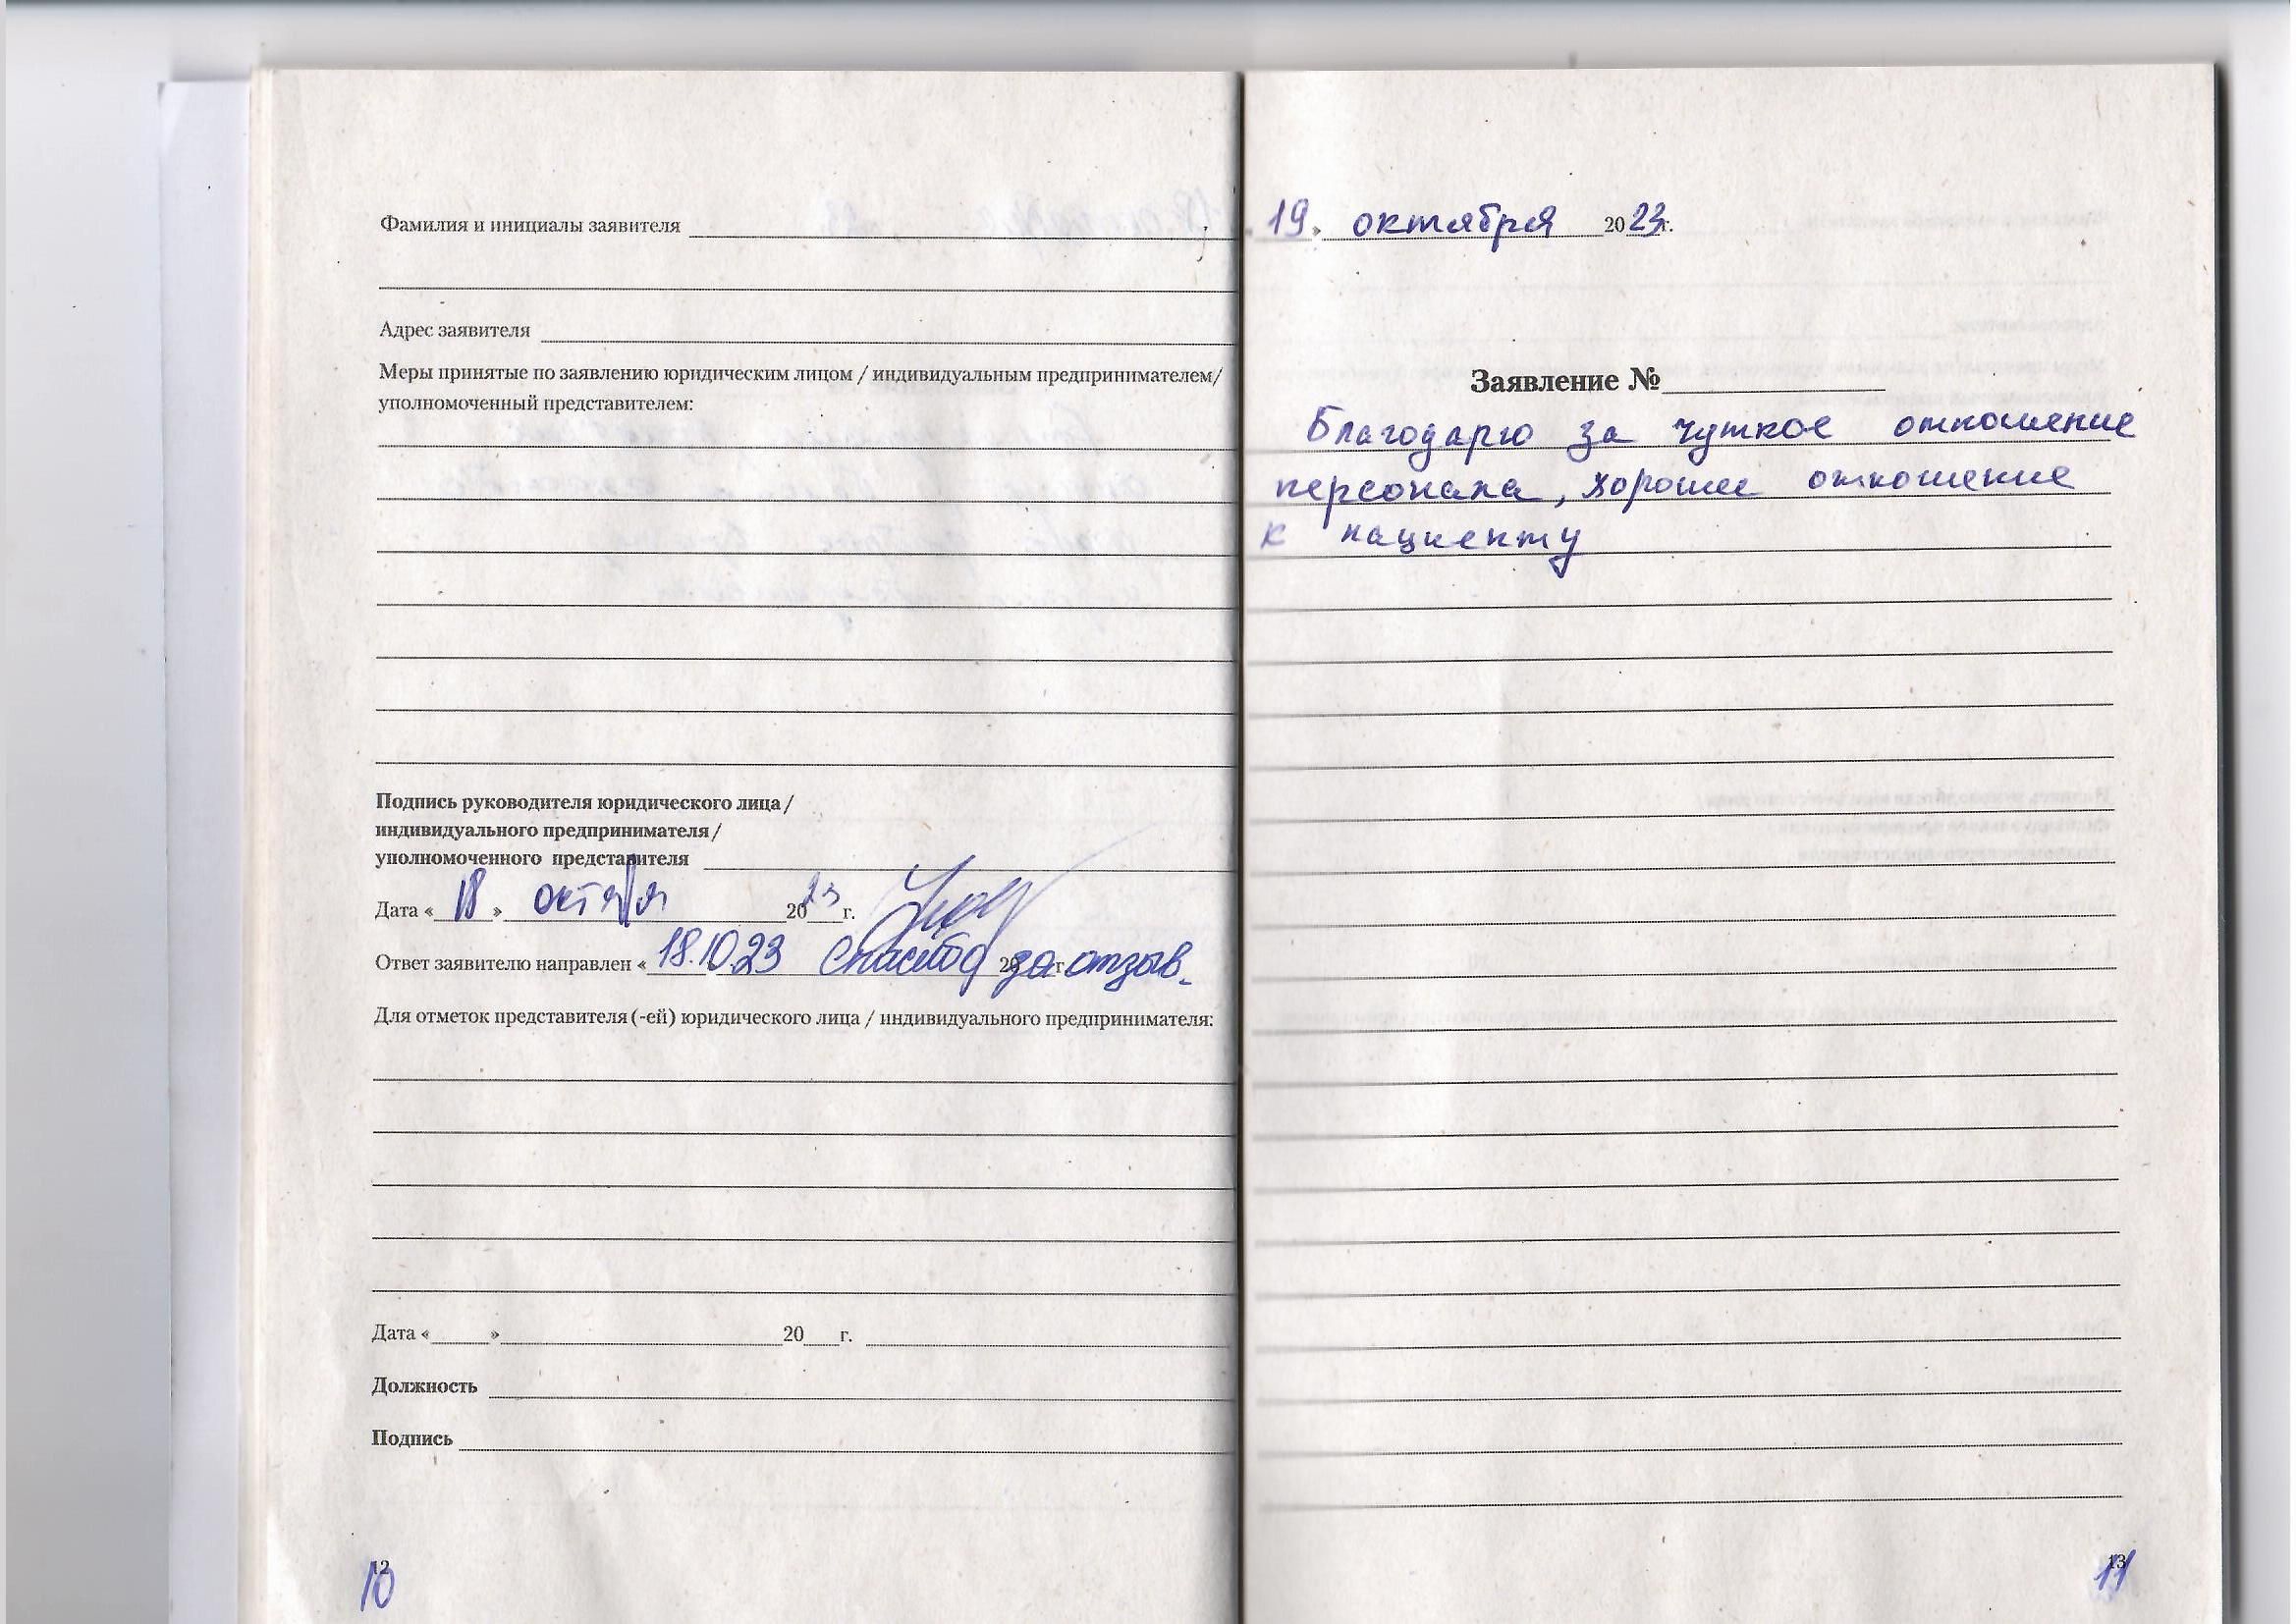 Фамилия и инициалы заявителя
Адрес заявителя
Меры принятые по заявлению юридическим лицом / индивидуальным предпринимателем/
уполномоченный представителем:
Подпись руководителя юридического лица /
индивидуального предпринимателя /
уполномоченного представителя
Дата « 18 » октября 2023 г.
Ответ заявителю направлен « 18.10.23 Спасибо за отзыв.
Для отметок представителя (-ей) юридического лица / индивидуального предпринимателя:
Дата « » 20 г.
Должность
Подпись
12
10
19 » октября 2023 г.
Заявление №
Благодарю за чуткое отношение
персонала, хорошее отношение
к пациенту
13
11